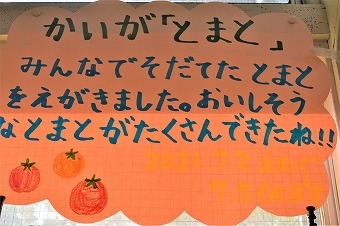 かいが「とまと」
みんなでそだてた とまと
をえがきました。おいしそう
なとまとがたくさんできたね!!